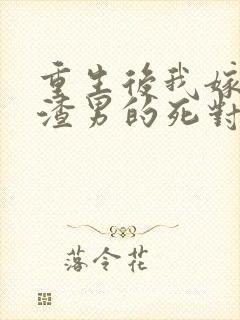 重生後我嫁
渣男的死對
落令花